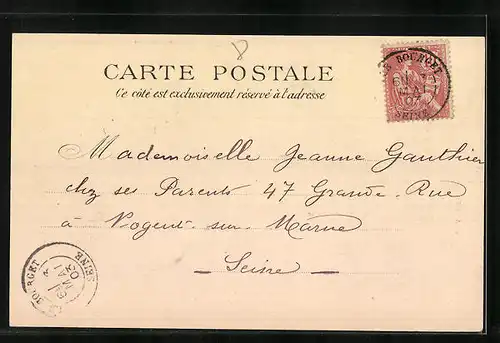 8
CARTE POSTALE
Ce côté est exclusivement réservé à l'adresse
LE BOURGET
MAI
SEINE
Mademoiselle Jeanne Gauthier
chez ses Parents 47 Grande-Rue
à Nogent-sur-Marne
— Seine —
LE BOURGET
MAI
SEINE